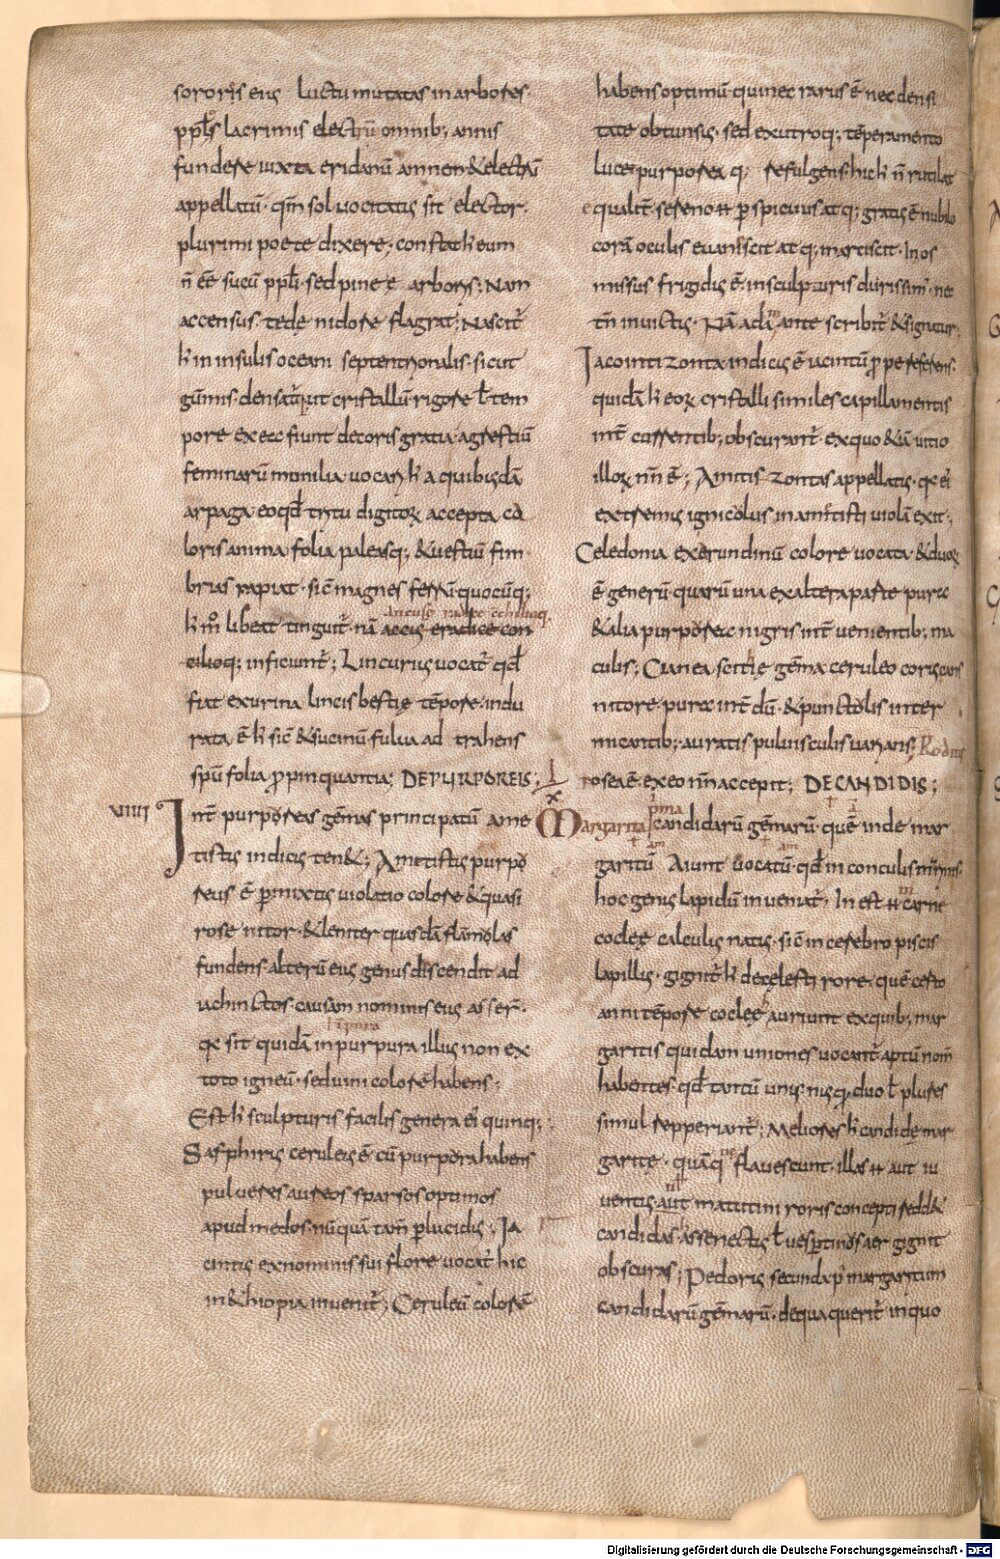 sororis eius luctu mutatas in arbores
ppl̃s lacrimis electrũ omnib; annis
fundere iuxta eridanũ amnem & electrũ
appellatũ · qm̃ sol uocitatus sit elector·
plurimi poete dixere; constat h̃ eum
ñ eẽ sucũ ppl̃i · sed pine ẽ arboris; Nam
accensus · tede nidore flagrat; Nascit̃
h̃ in insulis oceani septentrionalis · sicut
gũmis · densat̃ur ut cristallũ rigore l̃ tem
pore ex ec fiunt decoris gratia agrestiũ
feminarũ monilia uocari h̃ a quibusdã
arpaga eo qd̃ tritu digitoꝝ accepta ca
loris anima folia paleasq; & uestiũ fim
brias rapiat · sic̃ magnes ferrũ quocũq;
ancusę radice conchiliaq;
h̃ m̊ libeat tinguit̃ · nã accis eradice con
ciliaq; inficiunt̃; Lincurius uocat̃ qd̃
fiat ex urina lincis bestię tẽpore indu
rata ẽ h̃ sic̃ & sucinũ fulua ad trahens
spũ folia ppinquantia; DEPURPOREIS;
VIIII Int̃ purporeas gẽmas principatũ ame
tistus indicus ten&; Ametistus purpo
reus ẽ pmixtus uiolatio colore & quasi
rose nitor · & leniter quasdã flãmolas
fundens · alterũ eius genus discendit ad
iachinctos · causam nominis eius asser̃·
qr sit quidã in purpura illius non ex
toto igneũ · sed uini colorẽ habens;
Est h̃ sculpturis facilis genera ei quinq;
Sasphirus ceruleus ẽ cũ purpora habens
pulueres aureos sparsos optimos
apud medos · nũquã tam̃ plucidus; Ia
cintus ex nominis sui flore uocat̃ hic
in &hiopia inuenit̃; Ceruleũ colorẽ
habens optimũ qui nec rarus ẽ nec densi
tate obtunsus · sed ex utroq; tẽperamento
luce purporea q; refulgens · hic h̃ ñ rutilat
equalit̃ · sereno perspicuus atq; gratus ẽ nubilo
corã oculis euanescit at q; marcescit · In os
missus frigidus ẽ · in sculpturis durissim̃ · ne
tñ inuictus · Nã adamante scribit̃ & signatur;
Iacointi zonta indicus ẽ iacintũ ppe referens·
quidã h̃ eoꝝ cristalli similes capillamentis
int̃ currentib; obscurant̃ · ex quo & iã uitio
illoꝝ nm̃ ẽ; Amitis zontas appellatus · qr ei
extremus igniculus in ametisti uiolã exit;
Celedonia ex erundinũ colore uocata & duoꝝ
ẽ generũ · quarũ una ex altera parte puree
& alia purporee nigris int̃ uenientib; ma
culis; Cianea scitię gẽma ceruleo coriscans
nitore · pura int̃dũ · & punctulis inter
micantib; auratis pulusculis uarians; Rodius
rosea ẽ · ex eo nm̃ accepit; DE CANDIDIS;
pma
Margarita candidarũ gẽmarũ · quẽ inde mar
garitũ Aiunt uocatũ · qd̃ in conculis mrinis
hoc genus lapidũ inueniat̃; In est carne
coclee calculus natus · sic̃ in cerebro piscis
lapillus · gignit̃ h̃ de cęlesti rore · quẽ certo
anni tẽpore coclee auriunt ex quib; mar
garitis quidam uniones uocant̃ aptũ nom̃
habentes · qd̃ tantũ unus nusq̃ duo l̃ plures
simul repperiant̃; Meliores h̃ candidę mar
garite · quãq̃ flauescunt · illas aut iu
uentis aut matutini roris concepti redd&
candidas · as senectus l̃ uespertinus aer gignit
obscuras; Pedoris secunda p̃ margaritum
candidarũ gẽmarũ · de qua querit̃ in quo